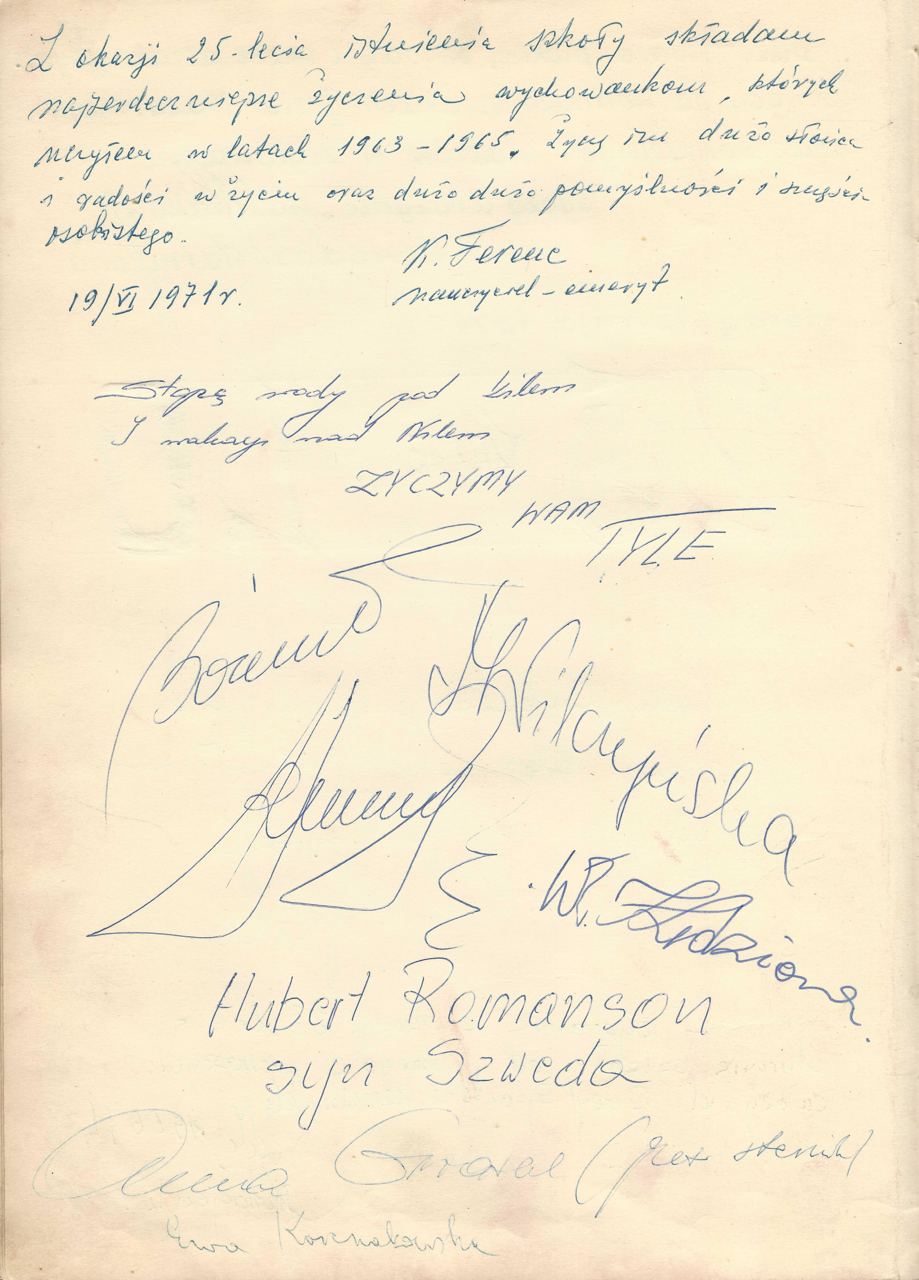 Z okazji 25-lecia istnienia szkoły składam
najserdeczniejsze życzenia wychowankom, których
uczyłem w latach 1963-1965. Życzę im dużo słońca
i radości w życiu oraz dużo dużo pomyślności i szczęścia
osobistego.
K. Ferenc
19/VI 1971r.
nauczyciel-emeryt
Stopę wody pod kilem
I wakacji nad Nilem
ZYCZYMY
WAM
TYLE
Wilczyńska
Wł.
Hubert Romanson
syn Szweda
Anna
Ewa